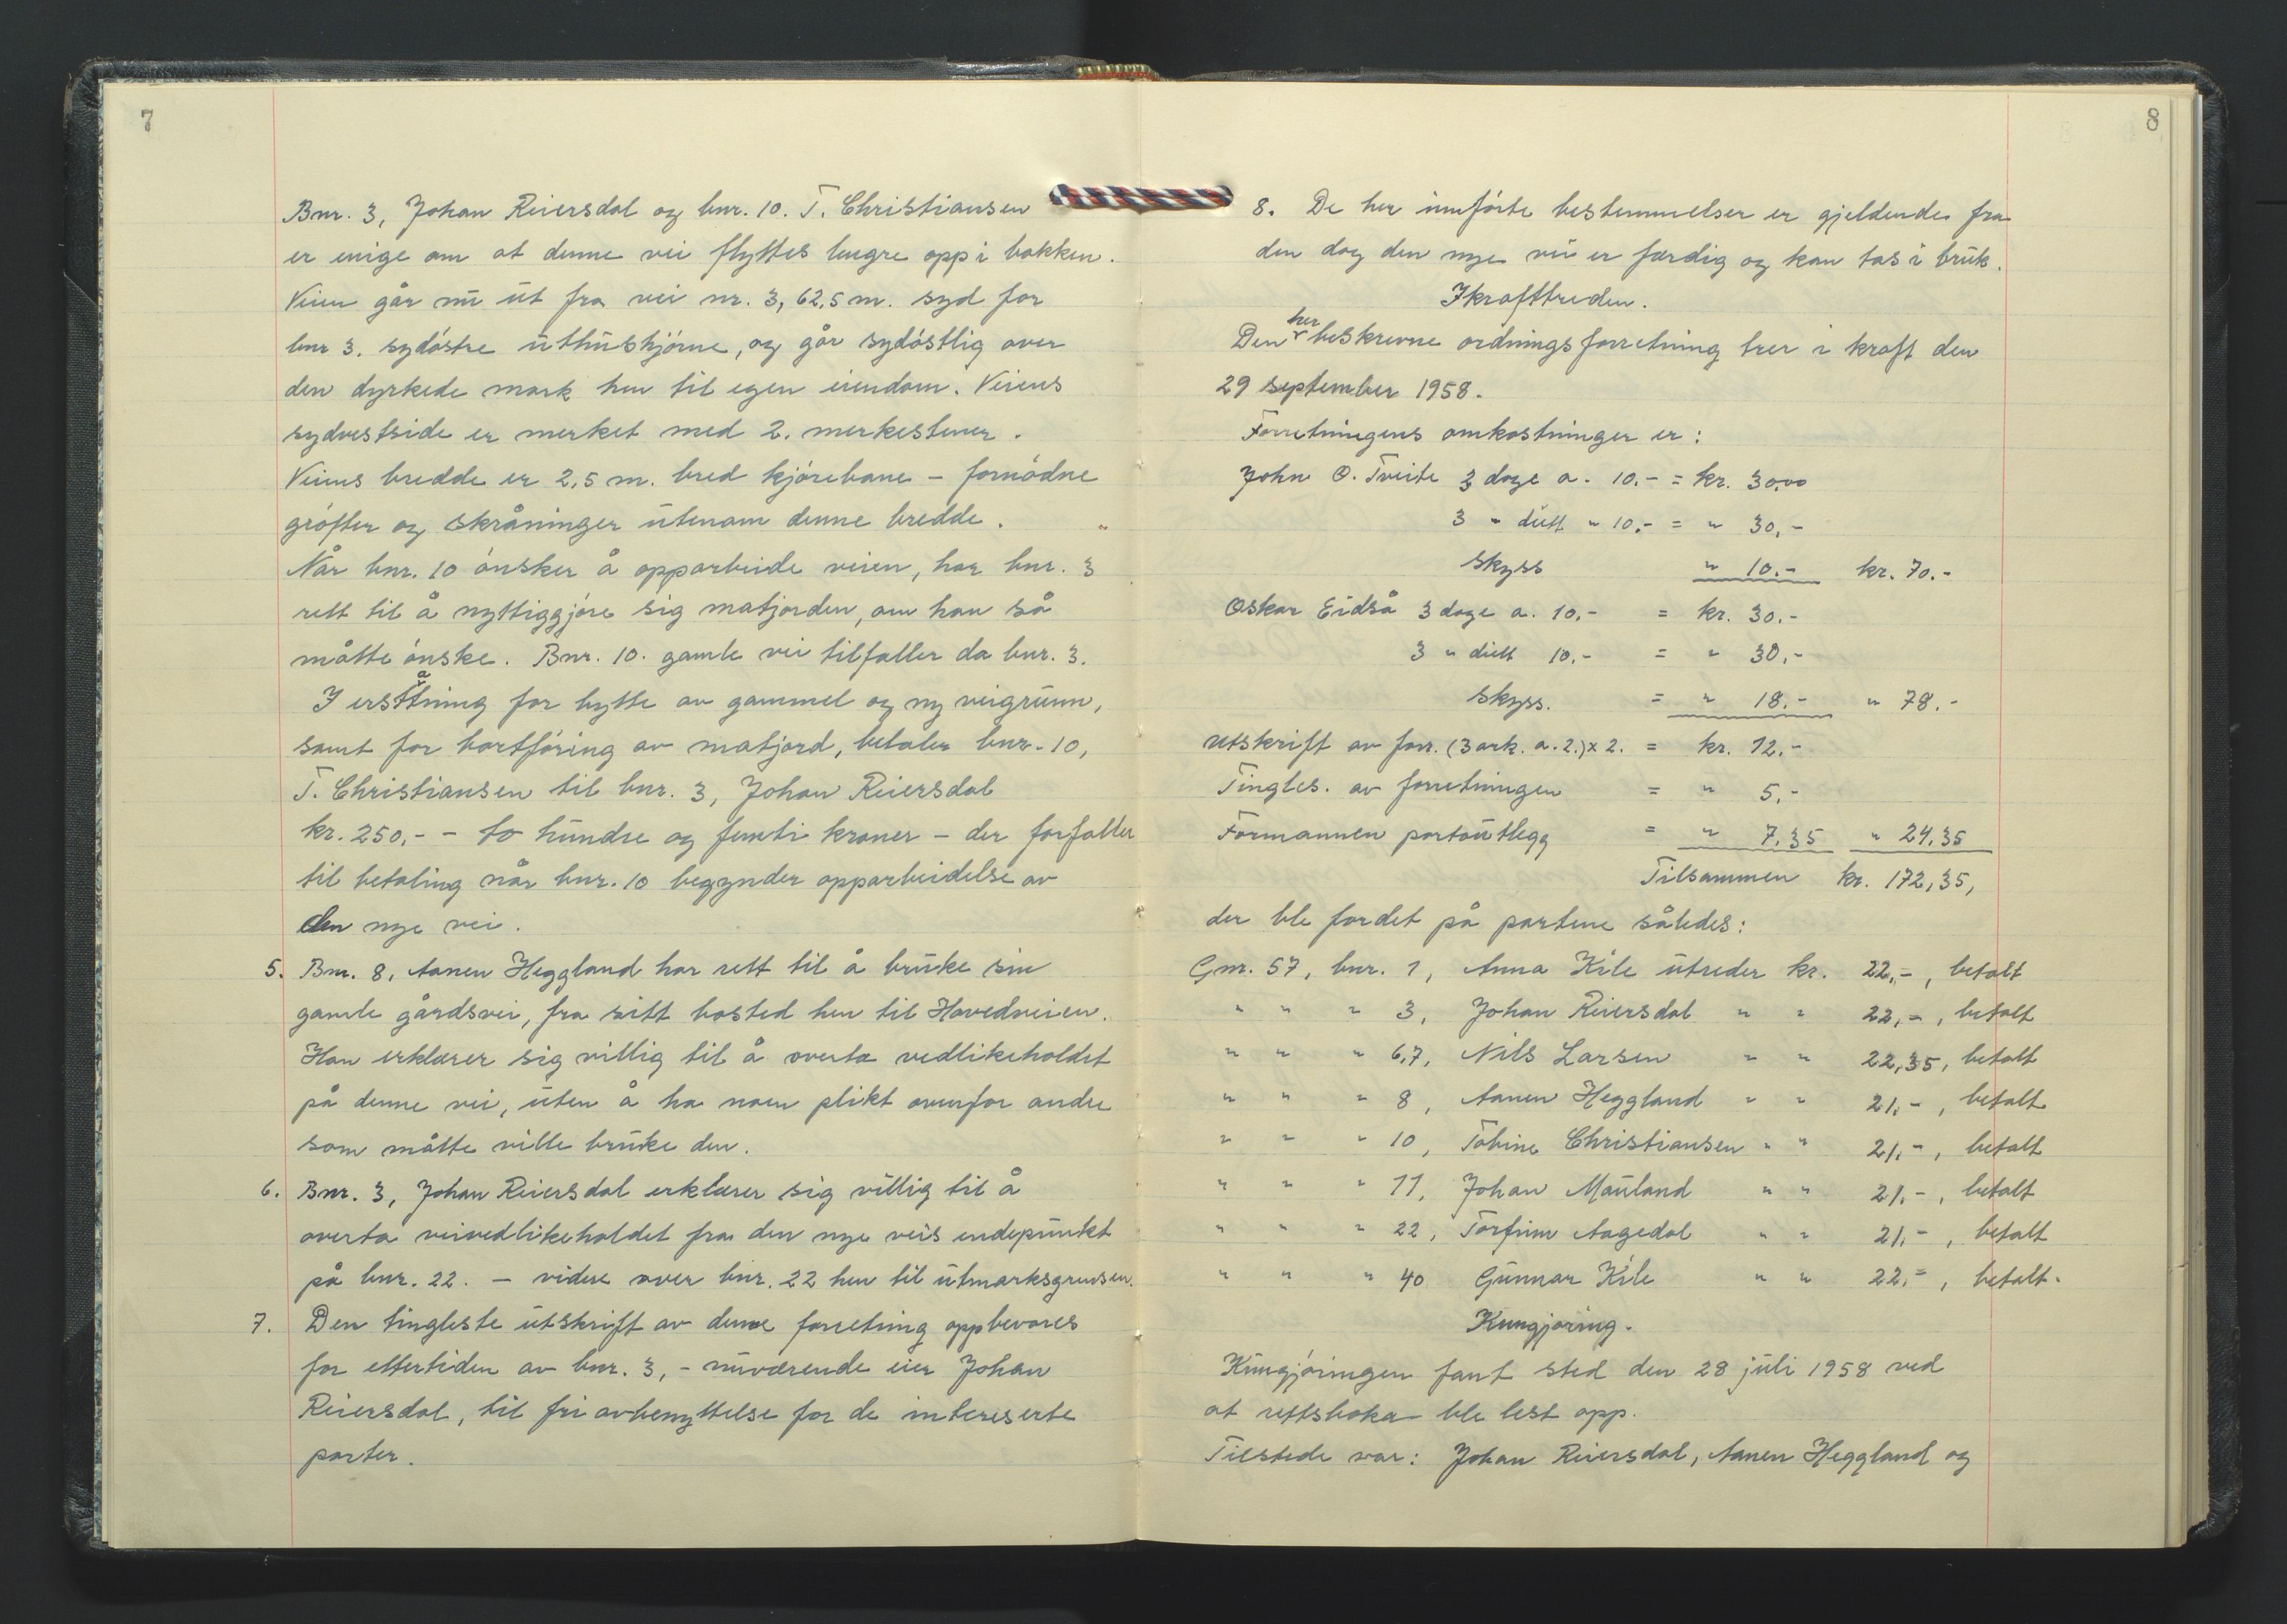 7
Bnr. 3, Johan Reiersdal og bnr. 10. T. Christiansen
er enige om at denne vei flyttes lengre opp i bakken.
Veien går nu ut fra vei nr. 3, 62,5 m. syd for
bnr 3. sydöstre uthushjörne, og går sydöstlig over
den dyrkede mark hen til egen eiendom. Veiens
sydvestside er merket med 2. merkestener.
Veiens bredde er 2,5 m. bred kjörebane – fornödne
gröfter og skråninger utenom denne bredde.
Når bnr. 10 önsker å opparbeide veien, har bnr. 3
rett til å nyttiggjöre sig matjorden, om han så
måtte önske. Bnr. 10. gamle vei tilfaller da bnr. 3.
I erstatning for bytte av gammel og ny veigrunn,
samt for bortföring av matjord, betaler bnr. 10,
T. Christiansen til bnr. 3, Johan Reiersdal
kr. 250,- – to hundre og femti kroner – der forfaller
til betaling når bnr. 10 begynder opparbeidelse av
den nye vei.
5. Bnr. 8, Aanen Heggland har rett til å bruke sin
gamle gårdsvei, fra sitt bosted hen til Hovedveien.
Han erklærer sig villig til å overta vedlikeholdet
på denne vei, uten å ha noen plikt ovenfor andre
som måtte ville bruke den.
6. Bnr. 3, Johan Reiersdal erklærer sig villig til å
overta veivedlikeholdet fra den nye veis endepunkt
på bnr. 22. – videre over bnr. 22 hen til utmarksgrensen.
7. Den tingleste utskrift av denne forretning oppbevares
for ettertiden av bnr. 3, – nuværende eier Johan
Reiersdal, til fri avbenyttelse for de intereserte
parter.
8
8. De her innförte bestemmelser er gjeldende fra
den dag den nye vei er færdig og kan tas i bruk.
Ikrafttreden.
Den her beskrevne ordningsforretning trer i kraft den
29 september 1958.
Forretningens omkostninger er:
John O. Tveite 3 dage a. 10.- = kr. 30.00
3 " diett " 10.- = " 30,-
Skyss " 10.- kr. 70.-
Oskar Eidså 3 dage a. 10,- = kr. 30.-
3 " diett 10,- = " 30,-
Skyss. = " 18.- " 78.-
Utskrift av forr. (3 ark. a. 2.) x 2. = kr. 12.-
Tingles. av forretningen = " 5,-
Formannen portoutlegg = " 7,35 " 24,35
Tilsammen kr. 172,35,
der ble fordet på partene således:
Gnr. 57, bnr. 1, Anna Kile utreder kr. 22,-, betalt
" " " 3, Johan Reiersdal " " 22,-, betalt
" " " 6,7, Nils Larsen " " 22,35, betalt
" " " 8, Aanen Heggland " " 21,-, betalt
" " " 10, Tobine Christiansen " " 21,-, betalt
" " " 11, Johan Mauland " " 21,-, betalt
" " " 22, Torfinn Aagedal " " 21,-, betalt
" " " 40 Gunnar Kile " " 22,-, betalt.
Kungjöring.
Kungjöringen fant sted den 28 juli 1958 ved
at rettsboka ble lest opp.
Tilstede var: Johan Reiersdal, Aanen Heggland og